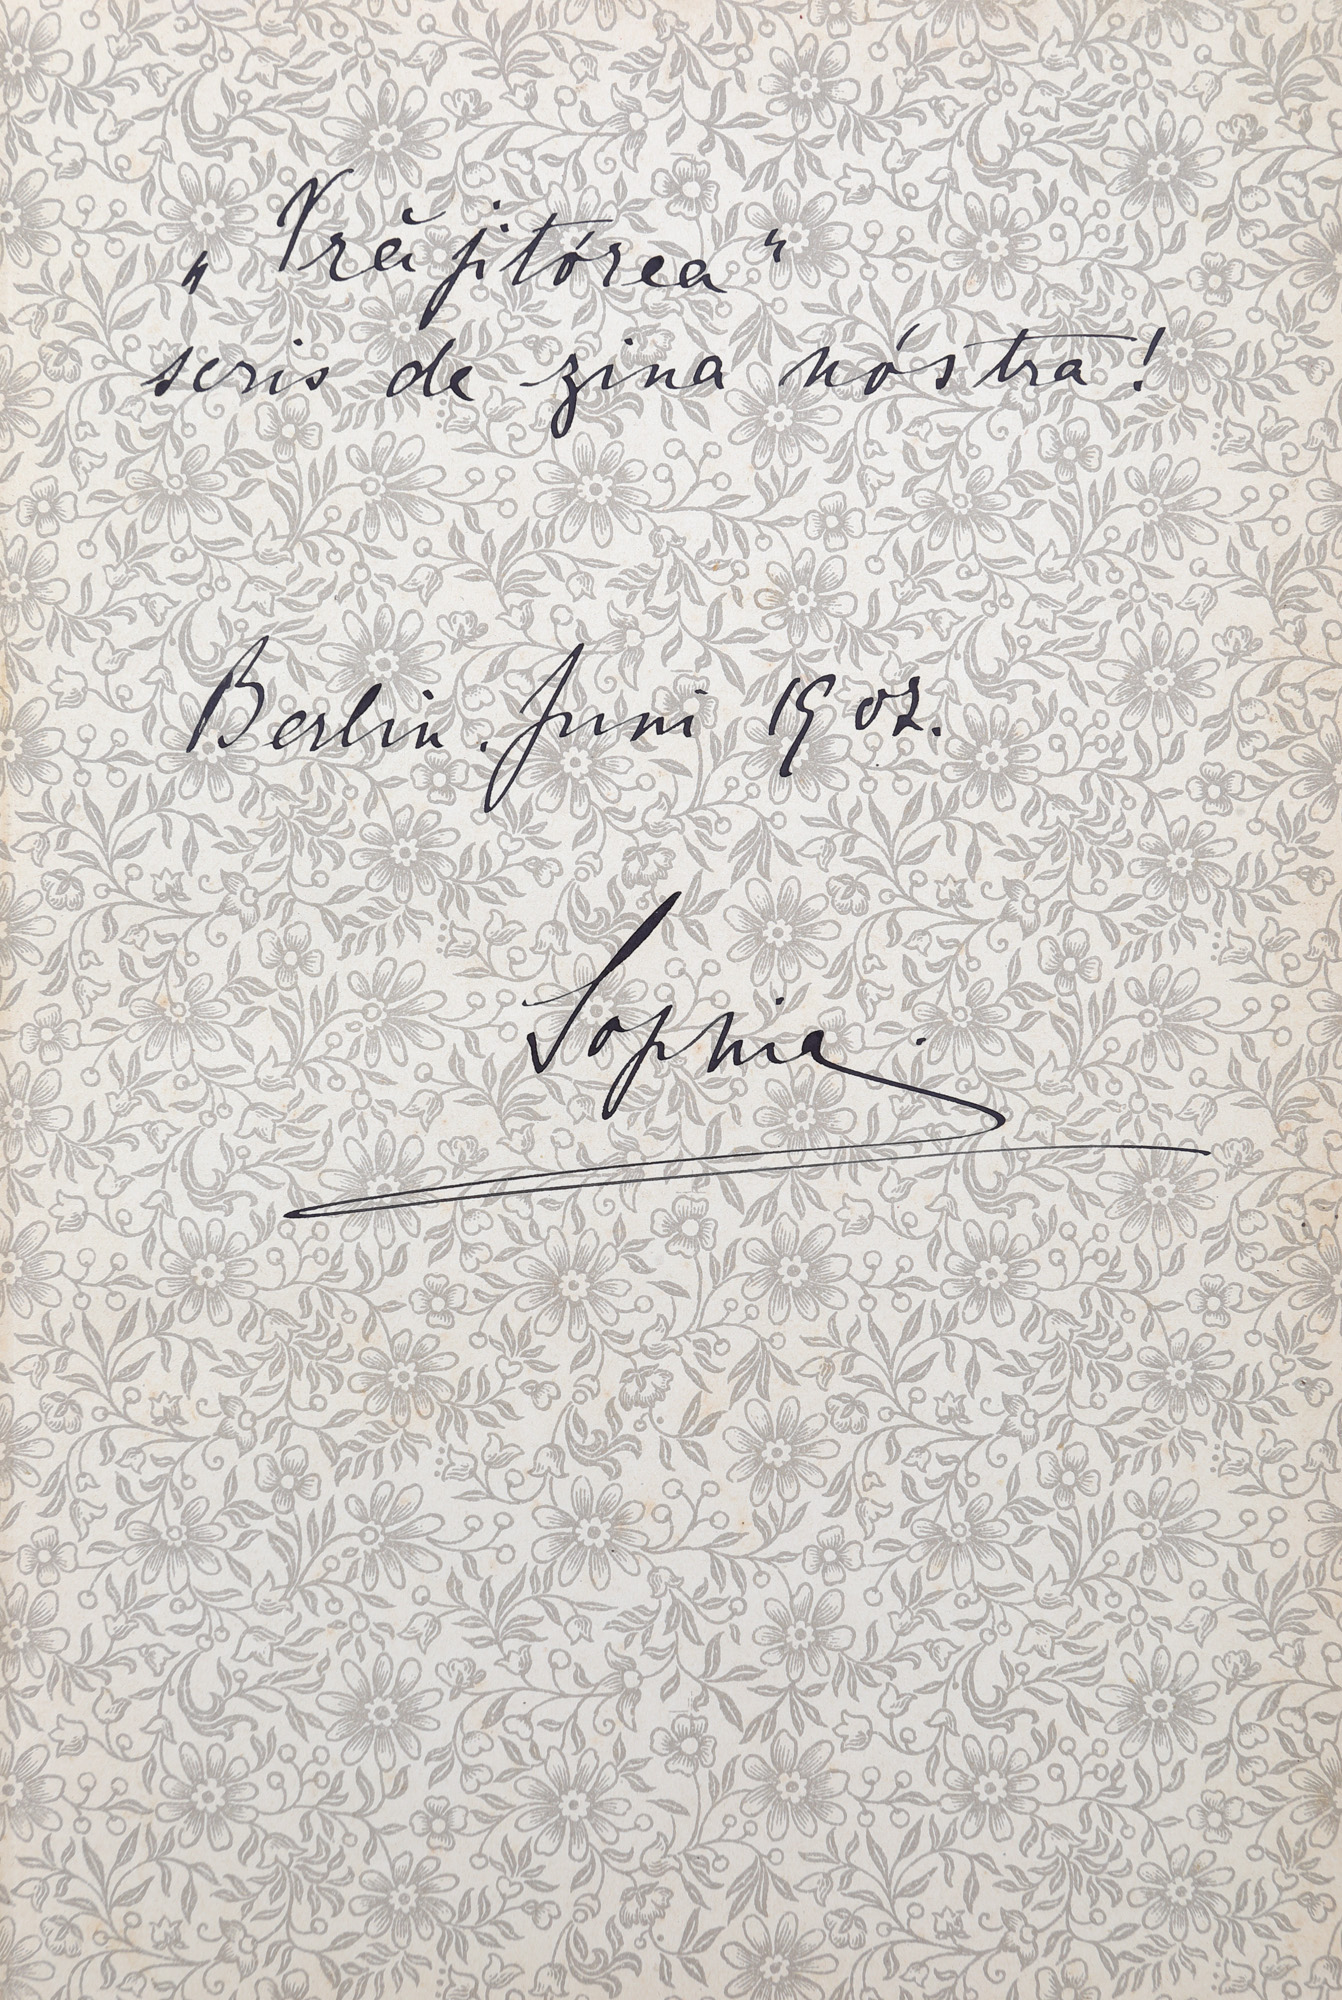 „Vrăjitórea“
scris de zina nóstra!
Berlin. Juni 1902.
Sophie.